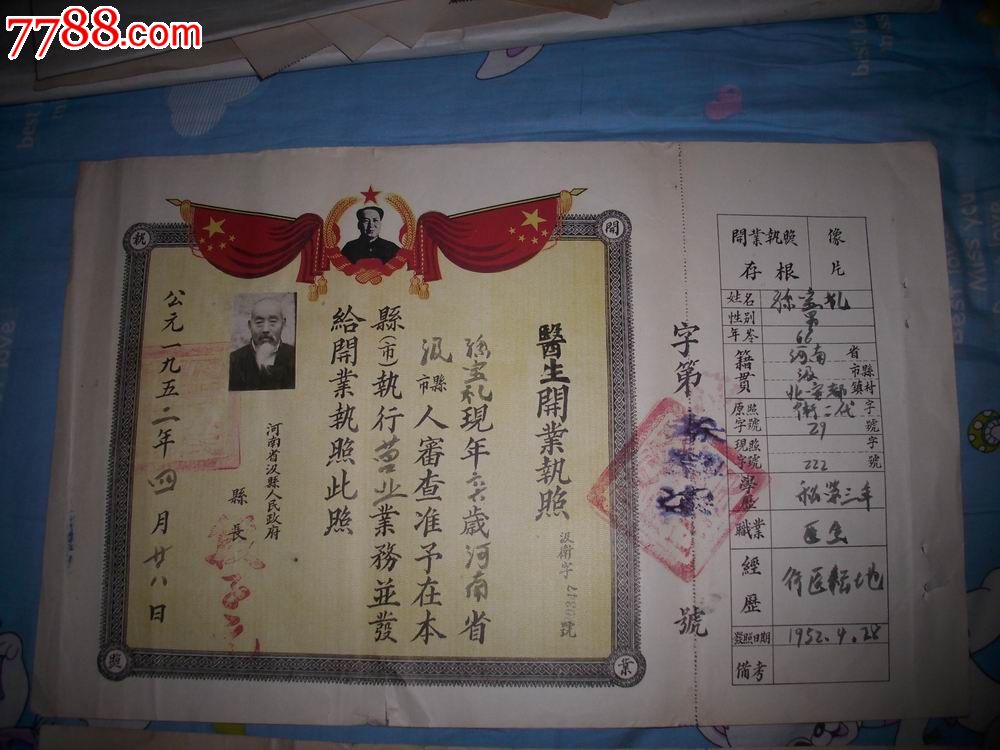 7788.com
開
業
執
照
醫生開業執照
汲衛字 號
現年六六歲河南省
汲縣市人審查准予在本
縣(市)執行业業務並發
給開業執照此照
河南省汲縣人民政府
縣長
公元一九五二年四月廿八日
字第 號
開業執照存根
像片
姓名
性別 男
年岑 66
籍貫 河南省
汲 市縣
鎮村
原照字號 二代字
29號
現照字號 字
222 號
學歷 私塾三年
職業 医生
經歷 行医耘地
發照日期 1952.4.28
備考
best
Miss you